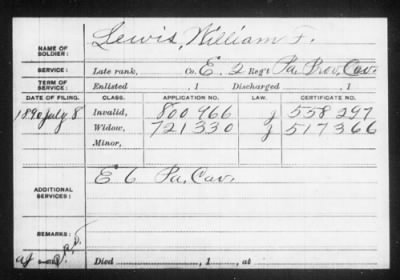 NAME OF SOLDIER: Lewis, William F.
SERVICE: Late rank, Co. E. 2 Reg't Pa. Prov. Cav.
TERM OF SERVICE: Enlisted , 1 Discharged , 1
DATE OF FILING. CLASS. APPLICATION NO. LAW. CERTIFICATE NO.
1890 July 8 Invalid, 800 966 J 558 297
Widow, 721 330 J 517 366
Minor,
ADDITIONAL SERVICES: E 6 Pa. Cav.
REMARKS:
Died , 1 , at